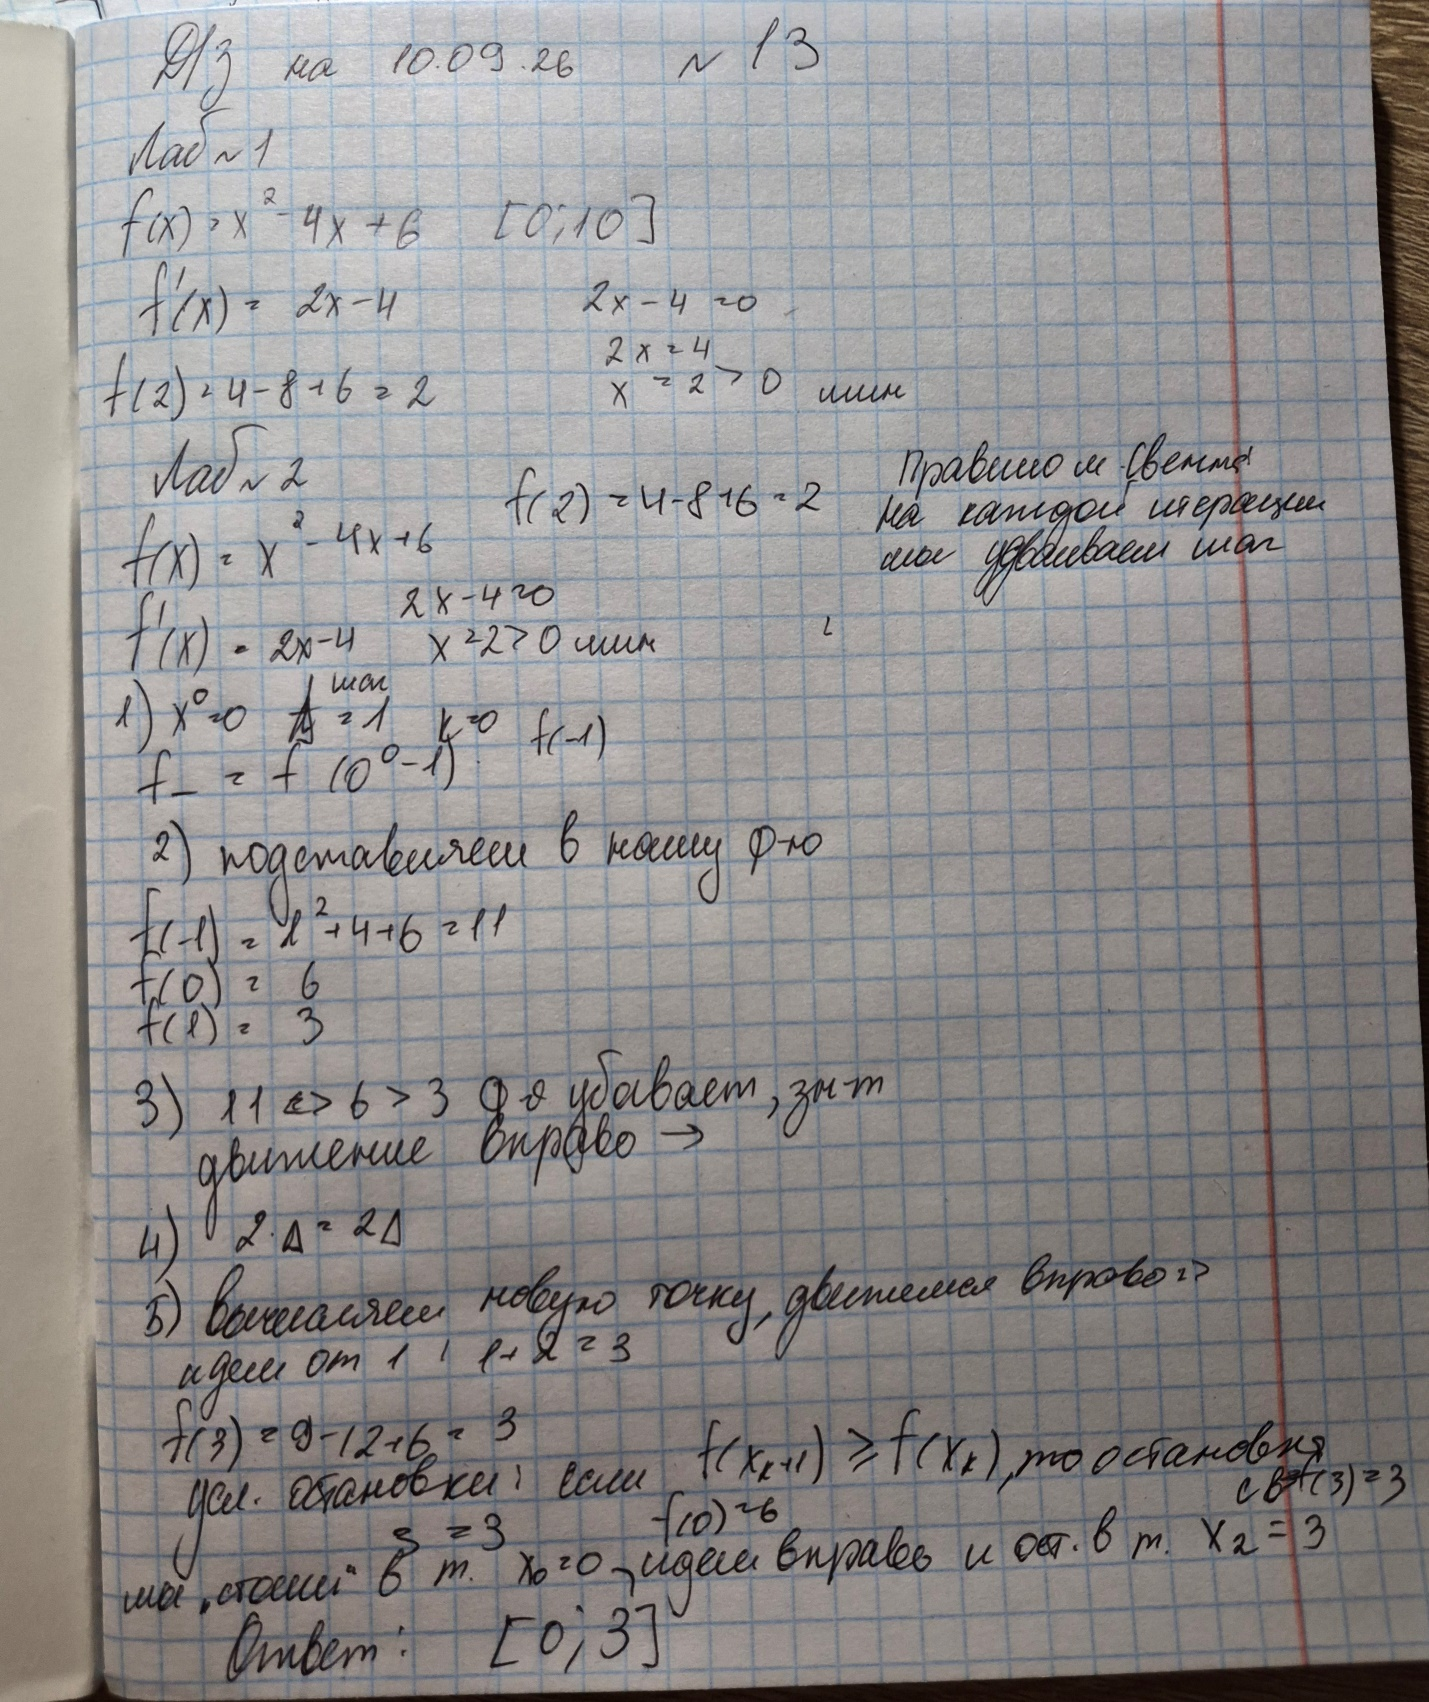 Д/з на 10.09.26 №13
Лаб №1
f(x) = x² - 4x + 6 [0; 10]
f'(x) = 2x - 4 2x - 4 = 0
2x = 4
f(2) = 4 - 8 + 6 = 2 x = 2 > 0 мин
Лаб №2
f(2) = 4 - 8 + 6 = 2
Правило м. Свенна
на каждой итерации
мы удваиваем шаг
f(x) = x² - 4x + 6
2x - 4 = 0
f'(x) = 2x - 4 x = 2 > 0 мин
шаг
1) x⁰ = 0 Δ = 1 k = 0 f(-1)
f_ = f (0⁰ - 1)
2) подставляем в нашу ф-ю
f(-1) = 1² + 4 + 6 = 11
f(0) = 6
f(1) = 3
3) 11 > 6 > 3 Ф-я убавает, зн-т
движение вправо →
4) 2 · Δ = 2Δ
5) вычисляем новую точку, движемся вправо =>
идем от 1 : 1 + 2 = 3
f(3) = 9 - 12 + 6 = 3
усл. остановки: если f(xₖ₊₁) ≥ f(xₖ), то остановка
3 = 3 f(0) = 6 f(3) = 3
мы „стоим" в т. x₀ = 0 идем вправо и ост. в т. x₂ = 3
Ответ: [0; 3]